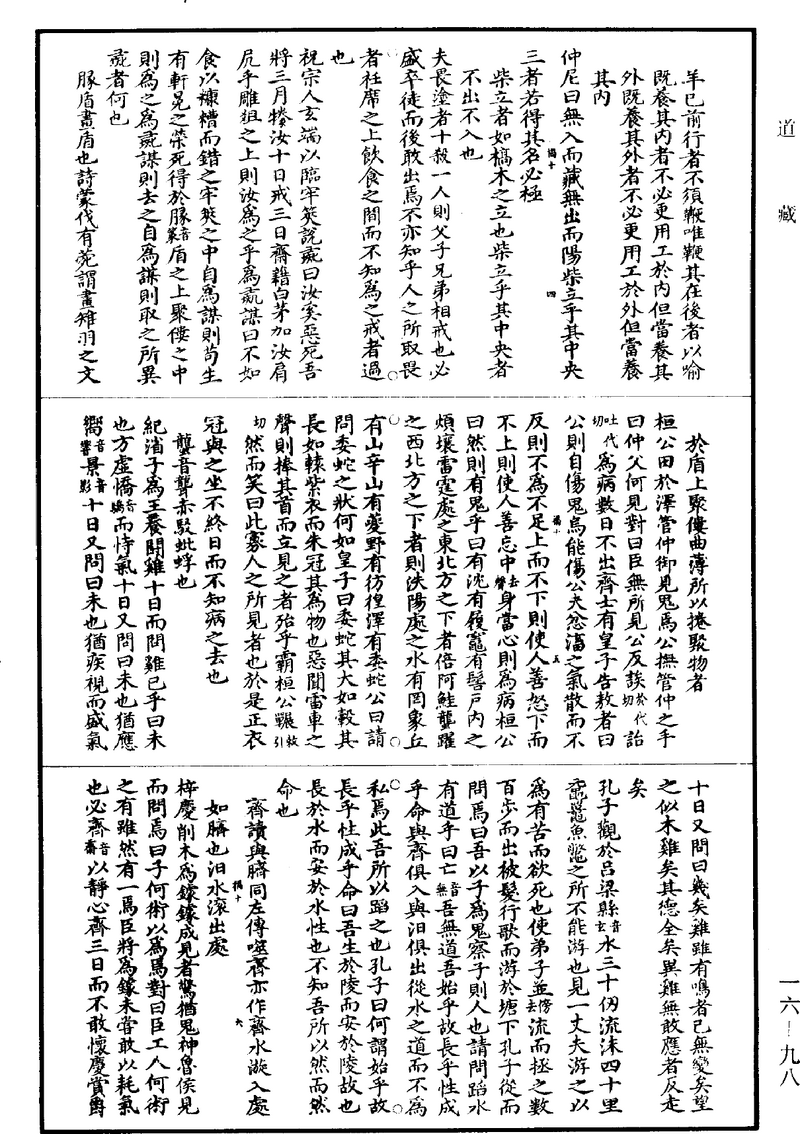 道藏
羊已前行者不須鞭唯鞭其在後者以喻
既養其內者不必更用工於內但當養其
外既養其外者不必更用工於外但當養
其內
仲尼曰無入而藏無出而陽柴立乎其中央
三者若得其名必極
柴立者如槁木之立也柴立乎其中央者
不出不入也
夫畏塗者十殺一人則父子兄弟相戒也必
盛卒徒而後敢出焉不亦知乎人之所取畏
者衽席之上飲食之間而不知為之戒者過
也
祝宗人玄端以臨牢筴說彘曰汝奚惡死吾
將三月㹖汝十日戒三日齋藉白茅加汝肩
尻乎雕俎之上則汝為之乎為彘謀曰不如
食以糠糟而錯之牢筴之中自為謀則苟生
有軒冕之榮死得於腞音篆盾之上聚僂之中
則為之為彘謀則去之自為謀則取之所異
彘者何也
腞盾畫盾也詩蒙伐有苑謂畫雉羽之文
於盾上聚僂曲薄所以捲聚物者
桓公田於澤管仲御見鬼焉公撫管仲之手
曰仲父何見對曰臣無所見公反誒於代切詒
吐代切為病數日不出齊士有皇子告敖者曰
公則自傷鬼烏能傷公夫忿滀之氣散而不
反則不為不足上而不下則使人善怒下而
不上則使人善忘中去聲身當心則為病桓公
曰然則有鬼乎曰有沈有履竈有髻戶內之
煩壤雷霆處之東北方之下者倍阿鮭蠪躍
之西北方之下者則泆陽處之水有罔象丘
有峷山有夔野有彷徨澤有委蛇公曰請
問委蛇之狀何如皇子曰委蛇其大如轂其
長如轅紫衣而朱冠其為物也惡聞雷車之
聲則捧其首而立見之者殆乎霸桓公辴敕引
切然而笑曰此寡人之所見者也於是正衣
冠與之坐不終日而不知病之去也
蠪音聾赤駮蚍蜉也
紀渻子為王養鬪雞十日而問雞已乎曰未
也方虛憍音驕而恃氣十日又問曰未也猶應
嚮音響景音影十日又問曰未也猶疾視而盛氣
十日又問曰幾矣雞雖有鳴者已無變矣望
之似木雞矣其德全矣異雞無敢應者反走
矣
孔子觀於呂梁縣音玄水三十仞流沫四十里
黿鼉魚鼈之所不能游也見一丈夫游之以
為有苦而欲死也使弟子並傍去流而拯之數
百步而出被髮行歌而游於塘下孔子從而
問焉曰吾以子為鬼察子則人也請問蹈水
有道乎曰亡音無吾無道吾始乎故長乎性成
乎命與齊俱入與汩俱出從水之道而不為
私焉此吾所以蹈之也孔子曰何謂始乎故
長乎性成乎命曰吾生於陵而安於陵故也
長於水而安於水性也不知吾所以然而然
命也
齊讀與臍同左傳噬齊亦作齊水漩入處
如臍也汩水滾出處
梓慶削木為鐻鐻成見者驚猶鬼神魯侯見
而問焉曰子何術以為焉對曰臣工人何術
之有雖然有一焉臣將為鐻未嘗敢以耗氣
也必齊音齋以靜心齊三日而不敢懷慶賞爵
一六—九八